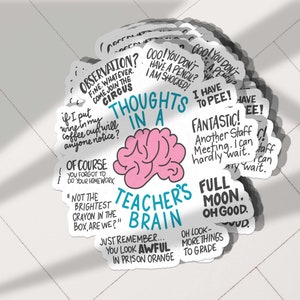 OBSERVATION?
FINE. WHATEVER.
COME JOIN THE
CIRCUS
OOO! YOU DON'T
HAVE A PENCIL?
I AM SHOCKED!
I HAVE
TO PEE!
if I put
wine in my
coffee cup will
anyone notice?
THOUGHTS
IN A
TEACHER'S
BRAIN
FANTASTIC!
Another Staff
Meeting. I can
hardly wait.
OF COURSE
YOU FORGOT TO
DO YOUR HOMEWORK
NOT THE
BRIGHTEST
CRAYON IN THE
BOX, ARE WE?"
FULL
MOON.
OH GOOD.
JUST REMEMBER...
YOU LOOK AWFUL
IN PRISON ORANGE
OH LOOK-
MORE THINGS
TO GRADE